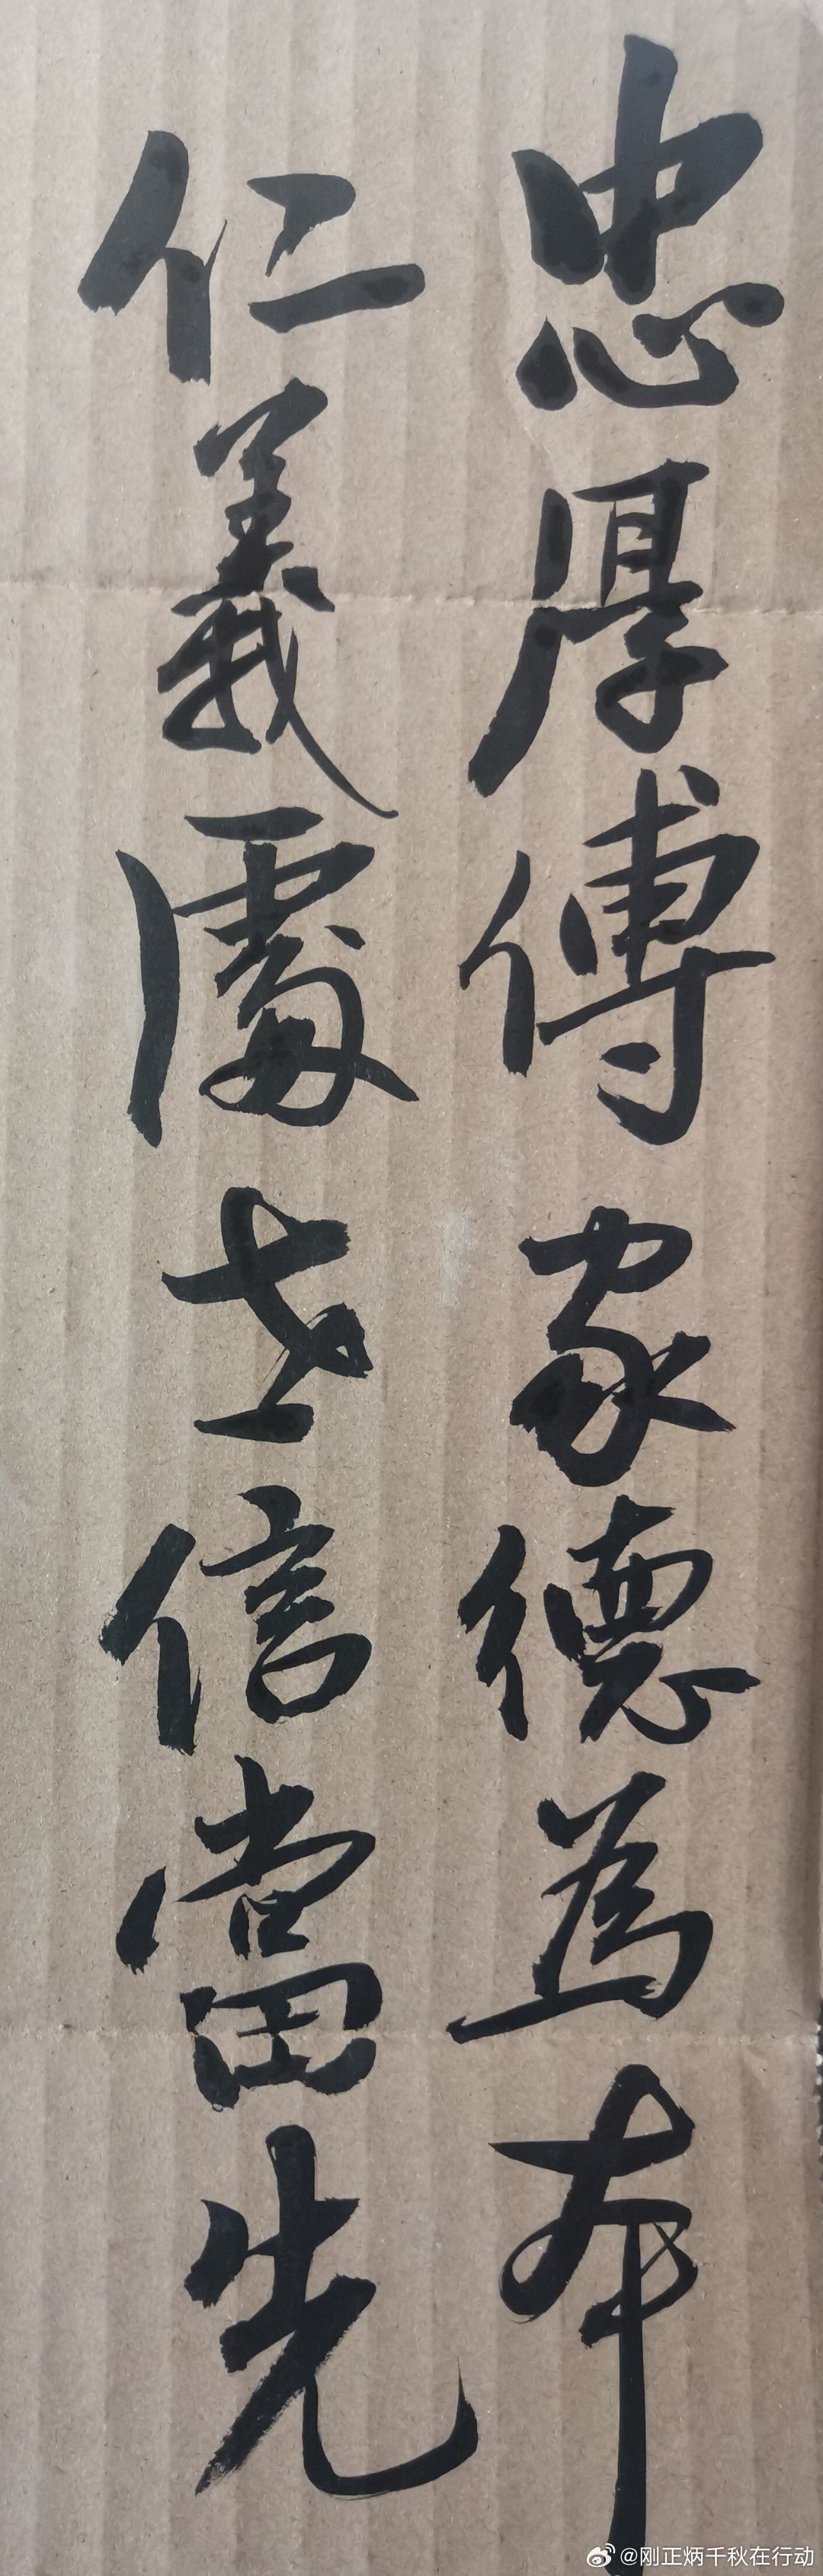 忠厚傳家德為本
仁義處世信當先
@刚正炳千秋在行动